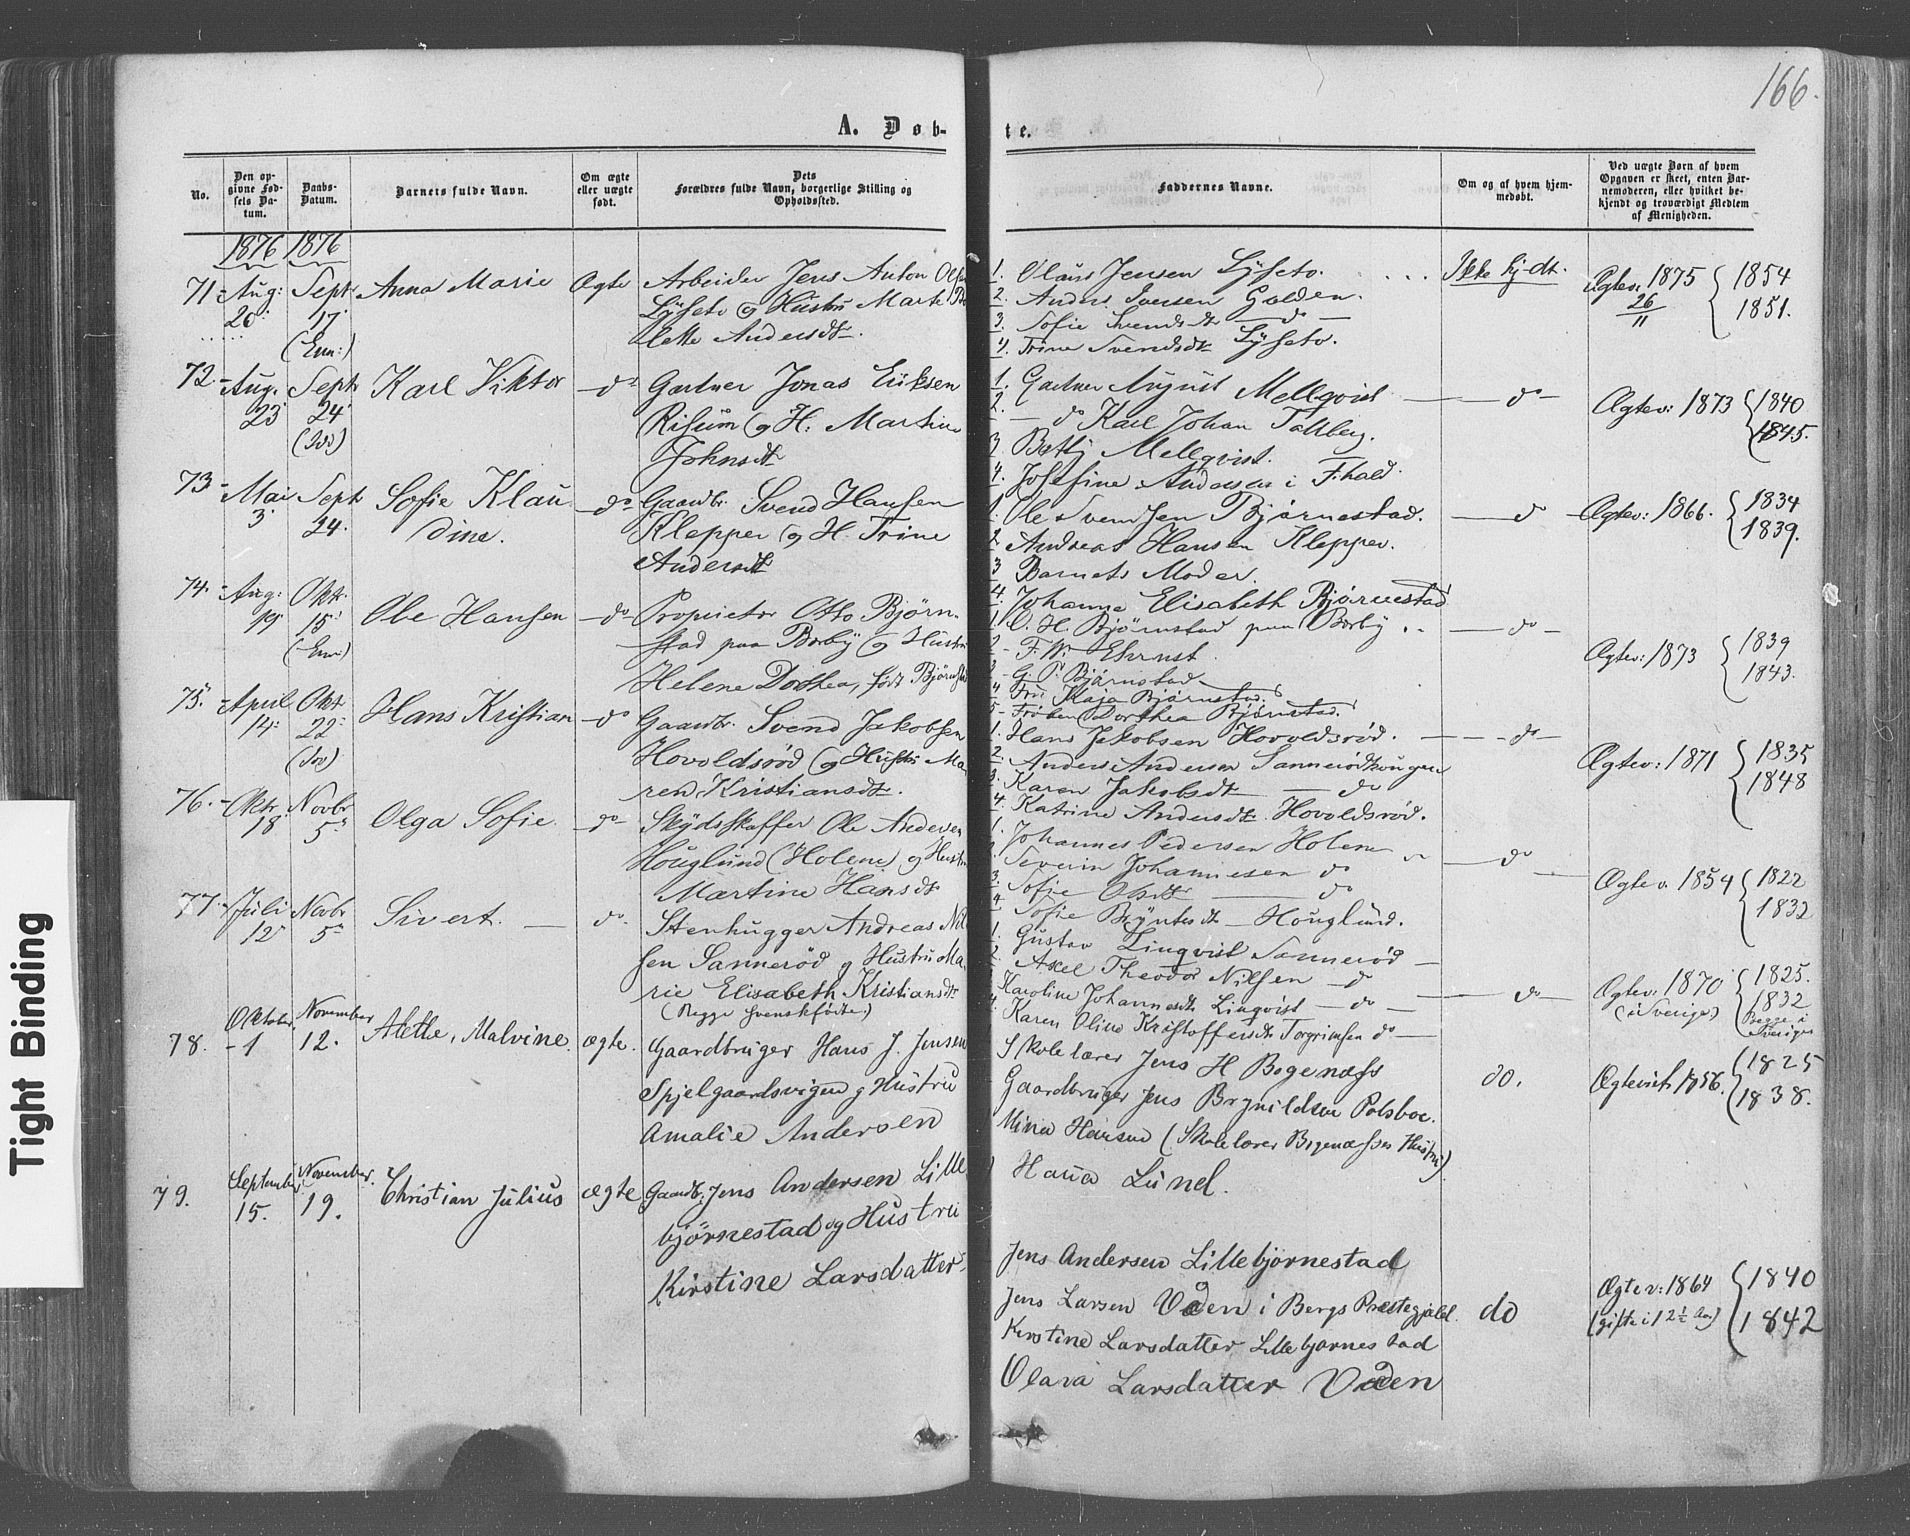 166.
A. Døb-
te.
No.
Den op-
givne Fød-
sels Da-
tum.
Daabs-
Datum.
Barnets fulde Navn.
Om ægte
eller uægte
født.
Dets
Forældres fulde Navn, borgerlige Stilling og
Opholdssted.
Faddernes Navne.
Om og af hvem hjem-
medøbt.
Ved uægte Børn af hvem
Opgaven er skeet, enten Bar-
nemoderen, eller hvilket be-
kjendt og troværdigt Medlem
af Menigheden.
1876 1876
71- Aug: Septr Anna Marie Ægte Arbeider Jens Anton
20. 17. Lyseto og Hustru
(Enn:) lette Andersdtr.
1. Olaus Jensen Lyseto. Ikke hj-dt.
2. Anders Iversen Golden.
3. Sofie Svendsdtr — do —
4. Trine Svendsdtr Lyseto.
Ægtev. 1875 { 1854
26/11 1851.
72- Aug. Septr Karl Viktor — do Gartner Jonas Eriksen
23 24 Risum og H. Martine
(Idd) Johnsdtr
1. Gartner August Mellqvist — do —
2. — do Karl Johan Tallberg.
3. Betty Mellqvist.
4. Josefine Andersen i F:hald.
Ægtev: 1873 { 1840
1845.
73- Mai Septr Sofie Klau — do — Gaardbr. Svend Hansen
3. 24. dine. Klepper og H. Trine
Andersdtr
1. Ole Svendsen Bjørnestad. — do —
2 Andreas Hansen Klepper.
3 Barnets Moder.
4. Johanne Elisabeth Bjørnestad
Ægtev: 1866. { 1834
1839.
74.- Aug: Oktr. Obe Hansen — do — Proprietær Otto Bjørn-
19 15 stad paa Borby og Hustru
(Enn:) Helene Dorthea, født Bjørnstad
1. O. H. Bjørnstad paa Borby — do —
2- F. W. Ehrnst.
3- G. P. Bjørnstad
4 Fru Kaja Bjørnstad.
5- Frøken Dorthea Bjørnstad.
Ægtev: 1873 { 1839
1843.
75.- April Oktr Hans Kristian — do Gaardbr. Svend Jakobsen
14. 22. Hovoldsrød og Hustru Ma
(Idd) ren Kristiansdtr.
1. Hans Jakobsen Hovoldsrød. — do —
2. Anders Andersen
3. Karen Jakobsdtr — do
4. Katrine Andersdtr Hovoldsrød.
Ægtev: 1871 { 1835
1848
76.- Oktr. Novbr Olga Sofie — do — Skydsskaffer Ole Andersen
18 5 Houglund (Holene) og Hustru
Martine Hansdtr
1. Johannes Pedersen Holene — do
2. Severin Johannesen do
3. Sofie Olsdtr — do
4. Sofie Bryntesdtr — Houglund.
Ægtev. 1854 { 1822
1832
77.- Juli Novbr Sivert. — do. Stenhugger Andreas Nil
12 5 sen Sannerød og Hustru Ma
rie Elisabeth Kristiansdtr
(Begge Svenskfødte.)
1. Gustav Linqvist Sannerød —
2. Axel Theodor Nilsen — do
3 Karoline Johannesdtr Linqvist — do — do —
4. Karen Oline Kristoffersdtr Torgrimsen do —
Ægtev. 1870 { 1825.
(i Sverige) 1832
Begge i
Sverige
78. Oktober November Alette, Malvine. ægte. Gaardbruger Hans J. Jensen
- 1 12. Spjelgaardsvigen og Hustru
Amalie Andersen
Skolelærer Jens H Bogenæss do.
Gaardbruger Jens Brynildsen Polsboe.
Mina Hansen (Skolelærer Bogenæsses Hustru)
Hana Lund.
Ægteviet 1856. { 1825
1838.
79. September November Christian Julius ægte Gaardb. Jens Andersen Lille
15. 19. bjørnestad og Hustru
Kirstine Larsdatter
Jens Andersen Lillebjørnestad
Jens Larsen Vøden i Bergs Præstegjeld. do
Kirstine Larsdatter Lillebjørnestad
Olava Larsdatter Vøden
Ægtev: 1864 { 1840
(gifte i 12½ Aar) 1842
Tight Binding